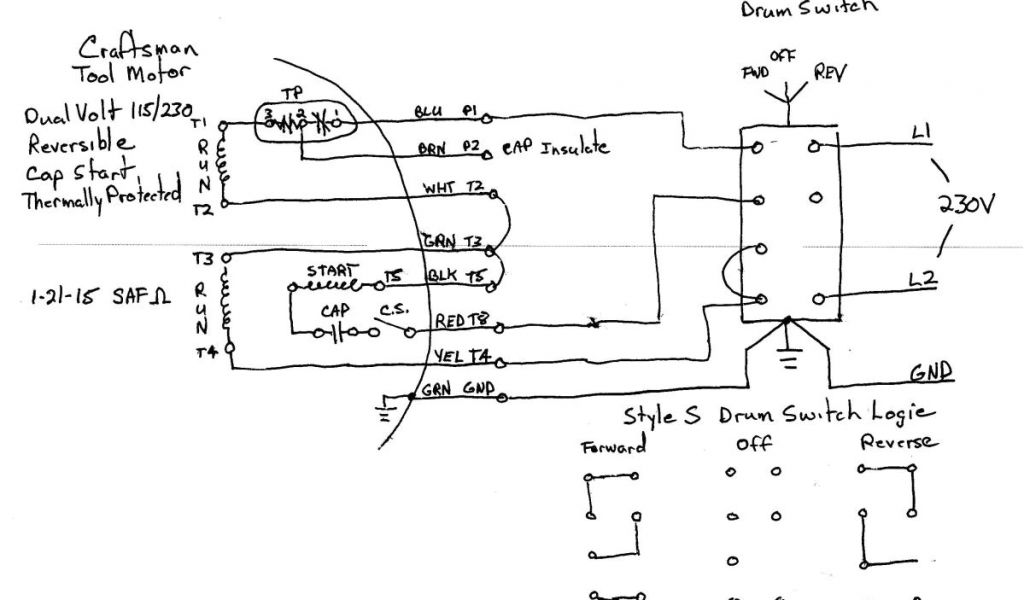 Drum Switch
Craftsman
Tool Motor
Dual Volt 115/230
Reversible
Cap Start
Thermally Protected
1-21-15 SAFΩ
TP
3 2 1
T1
RUN
T2
T3
RUN
T4
START
T5
CAP
C.S.
BLU P1
BRN P2
CAP Insulate
WHT T2
GRN T3
BLK T5
RED T8
YEL T4
GRN GND
OFF
FWD
REV
L1
230V
L2
GND
Style S Drum Switch Logic
Forward
Off
Reverse